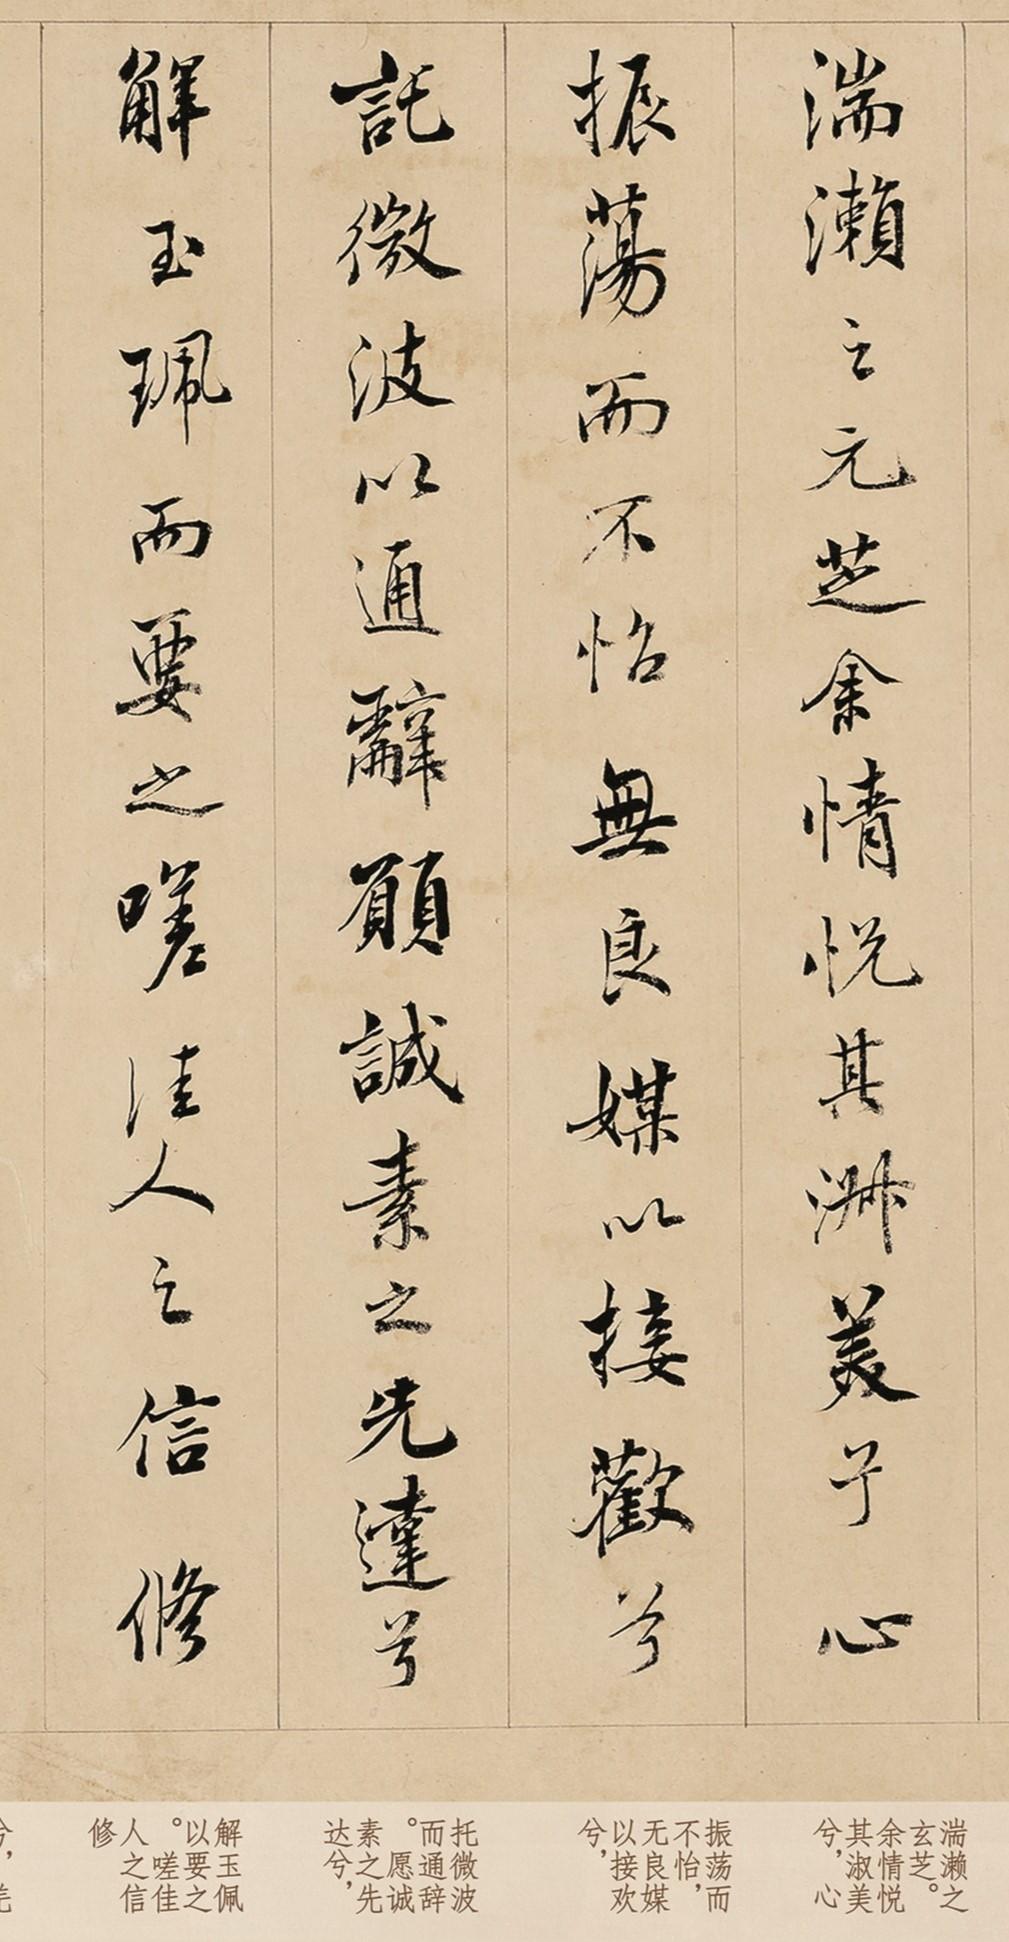 湍瀨之元芝余情悦其淑美兮心
振蕩而不怡無良媒以接歡兮
託微波以通辭願誠素之先達兮
解玉珮而要之嗟佳人之信修
湍濑之
玄芝。
余情悦
其淑美
兮，心
振荡而
不怡，
无良媒
以接欢
兮，
托微波
而通辞
。愿诚
素之先
达兮，
解玉佩
以要之
。嗟佳
人之信
修
兮，羌